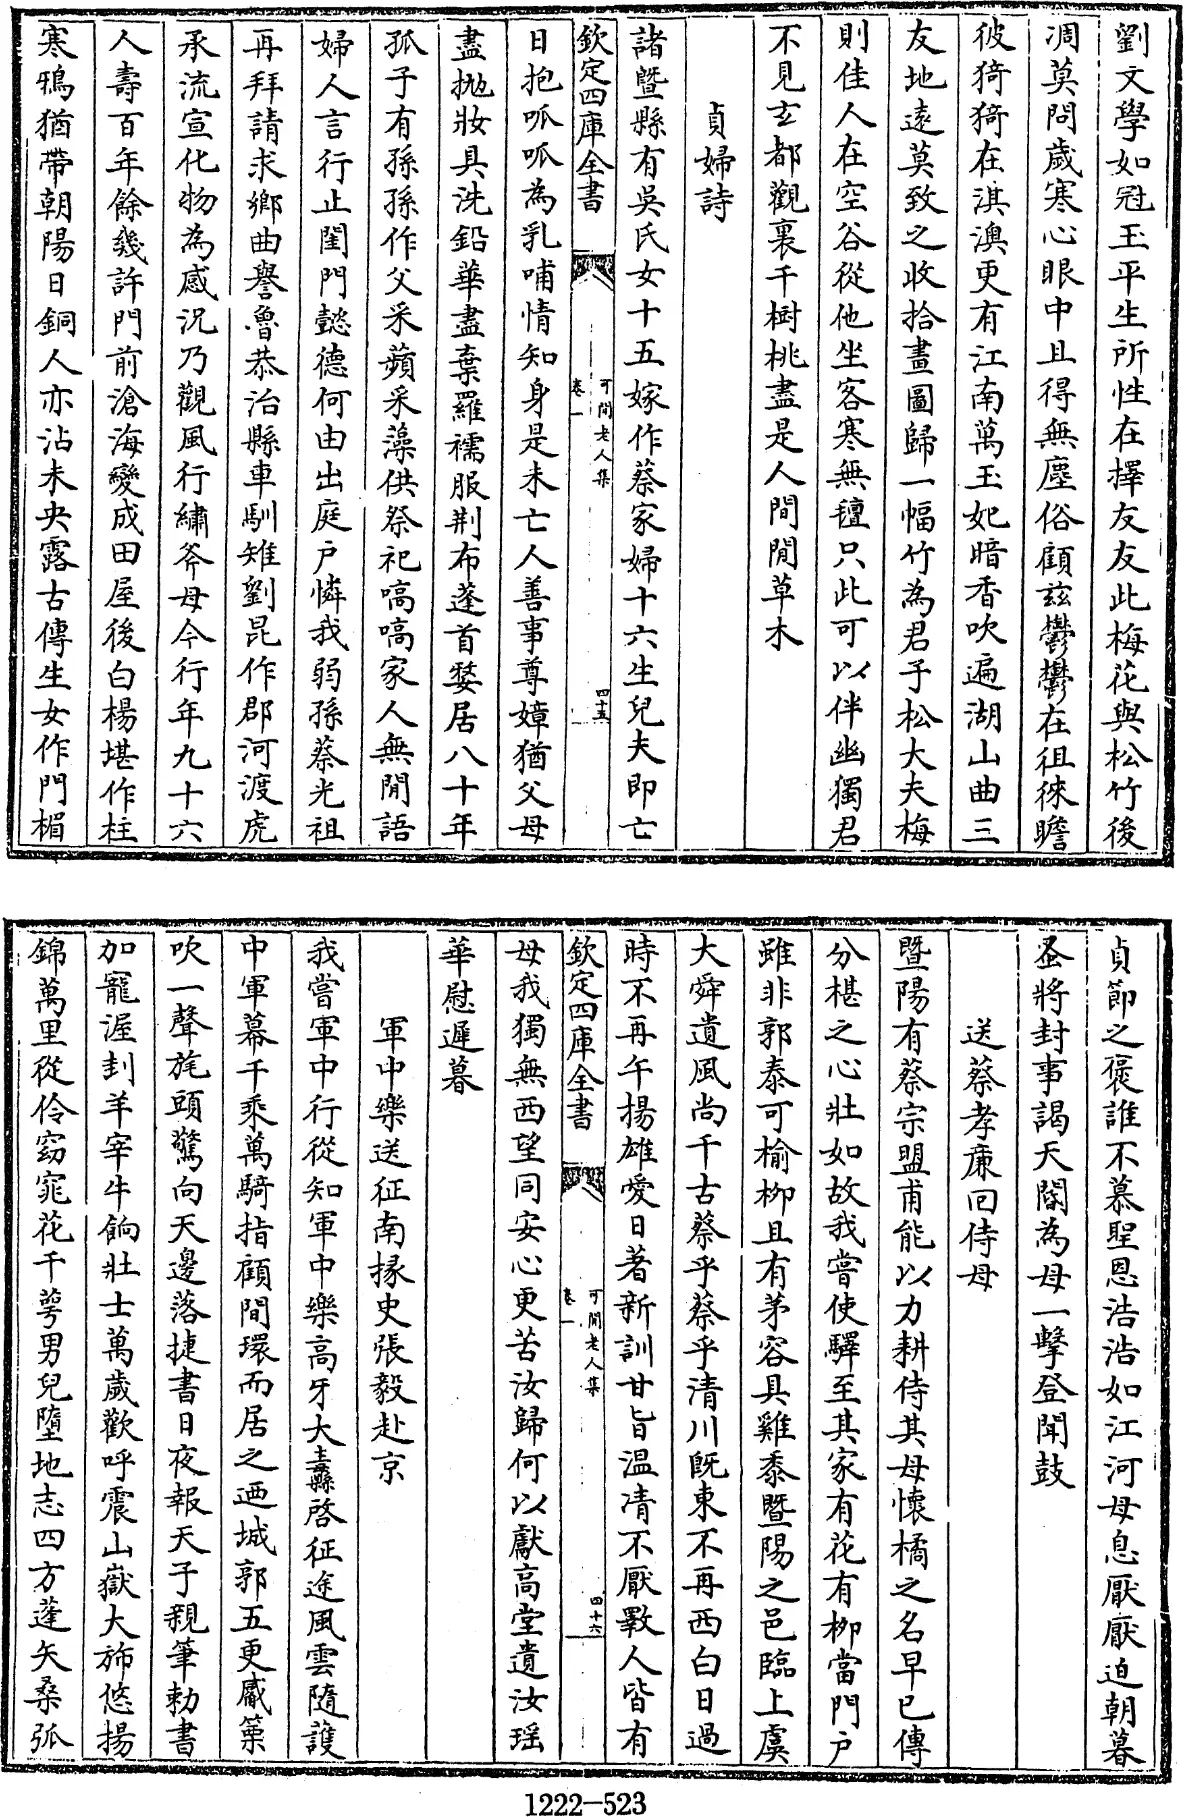 劉文學如冠玉平生所性在擇友友此梅花與松竹後
凋莫問歲寒心眼中且得無塵俗顧茲鬱鬱在徂徠瞻
彼猗猗在淇澳更有江南萬玉妃暗香吹遍湖山曲三
友地遠莫致之收拾畫圖歸一幅竹為君子松大夫梅
則佳人在空谷從他坐客寒無氊只此可以伴幽獨君
不見玄都觀裏千樹桃盡是人間閒草木
貞婦詩
諸暨縣有吳氏女十五嫁作蔡家婦十六生兒夫即亡
欽定四庫全書
可閒老人集
卷一
四十五
日抱呱呱為乳哺情知身是未亡人善事尊嫜猶父母
盡拋妝具洗鉛華盡棄羅襦服荆布蓬首嫠居八十年
孤子有孫孫作父采蘋采藻供祭祀嗃嗃家人無閒語
婦人言行止閨門懿德何由出庭户憐我弱孫蔡光祖
再拜請求鄉曲譽魯恭治縣車馴雉劉昆作郡河渡虎
承流宣化物為感況乃觀風行繡斧母今行年九十六
人壽百年餘幾許門前滄海變成田屋後白楊堪作柱
寒鴉猶帶朝陽日銅人亦沾未央露古傳生女作門楣
貞節之褒誰不慕聖恩浩浩如江河母息厭厭迫朝暮
蚤將封事謁天閽為母一擊登聞鼓
送蔡孝廉回侍母
暨陽有蔡宗盟甫能以力耕侍其母懷橘之名早已傳
分椹之心壯如故我嘗使驛至其家有花有柳當門户
雖非郭泰可榆柳且有茅容具雞黍暨陽之邑臨上虞
大舜遺風尚千古蔡乎蔡乎清川既東不再西白日過
時不再午揚雄愛日著新訓甘旨温凊不厭斁人皆有
欽定四庫全書
可閒老人集
卷一
四十六
母我獨無西望同安心更苦汝歸何以獻高堂遺汝瑶
華慰遲暮
軍中樂送征南掾史張毅赴京
我嘗軍中行從知軍中樂高牙大纛啓征途風雲隨護
中軍幕千乘萬騎指顧間環而居之迺城郭五更觱篥
吹一聲旄頭驚向天邊落捷書日夜報天子親筆勅書
加寵渥刲羊宰牛餉壯士萬歲歡呼震山嶽大斾悠揚
錦萬里從伶窈窕花千萼男兒墮地志四方蓬矢桑弧
1222—523